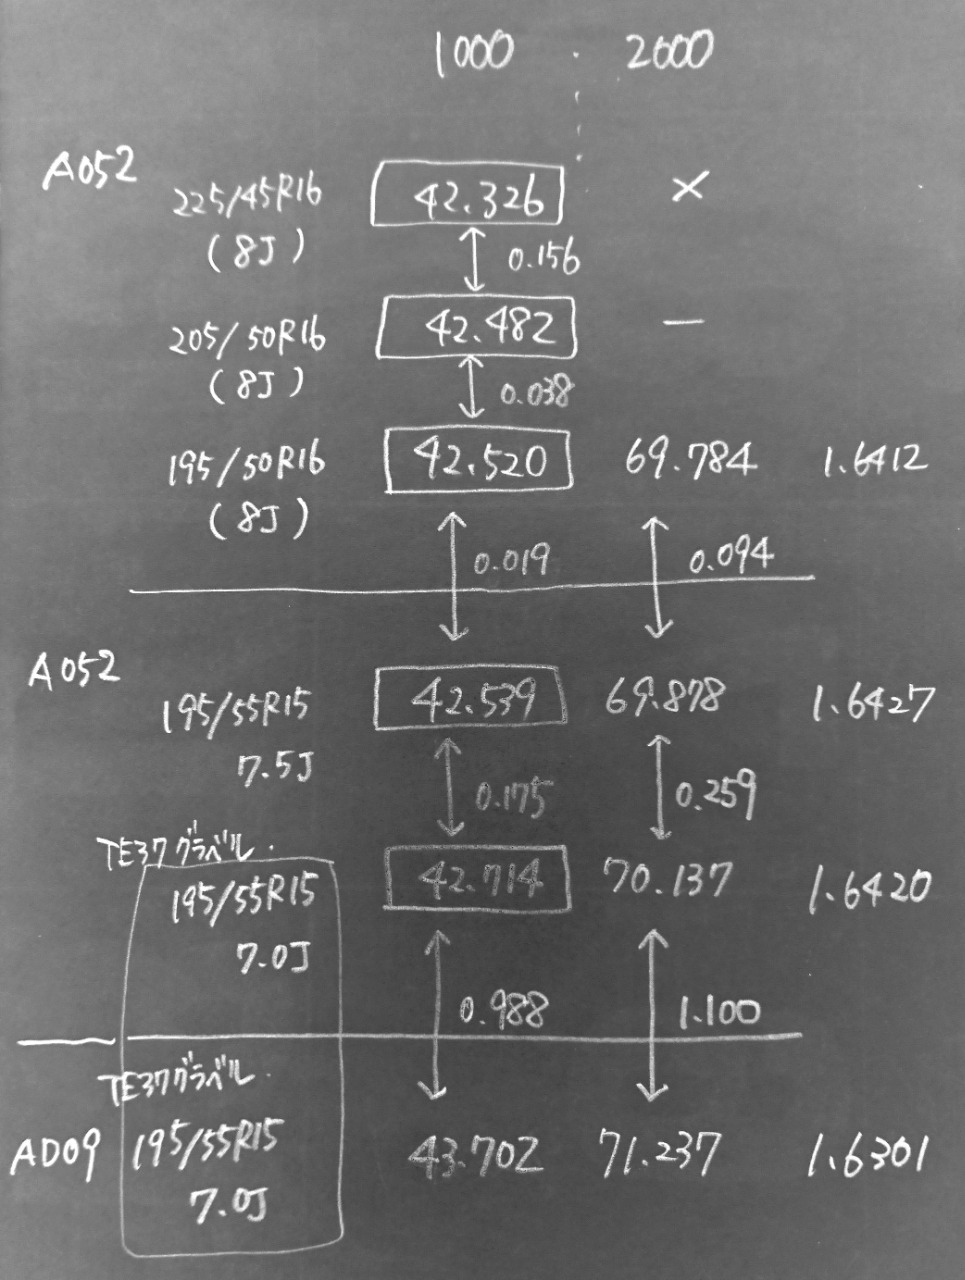 1000 2000
A052
225/45R16 42.326 ×
(8J) 0.156
205/50R16 42.482 —
(8J) 0.038
195/50R16 42.520 69.784 1.6412
(8J)
0.019 0.094
A052
195/55R15 42.539 69.878 1.6427
7.5J
0.175 0.259
TE37グラベル.
195/55R15 42.714 70.137 1.6420
7.0J
0.988 1.100
TE37グラベル.
AD09 195/55R15 43.702 71.237 1.6301
7.0J